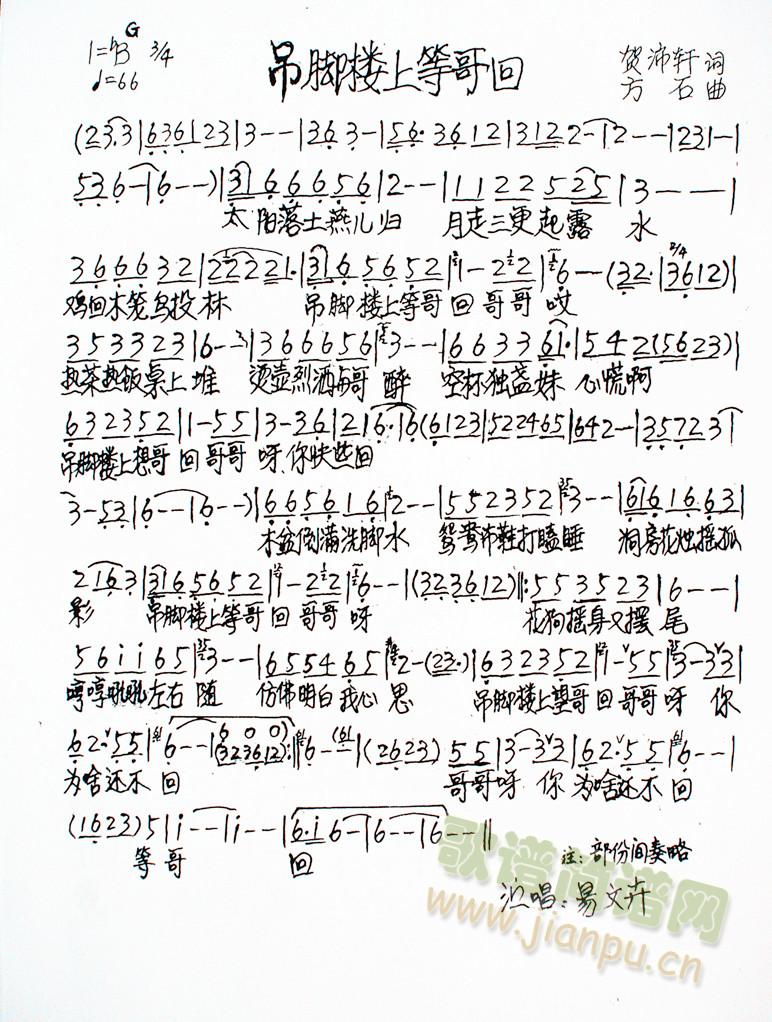 G
1=♭B 3/4
♩=66
吊脚楼上等哥回
贺沛轩 词
方石 曲
(23.3|636123|3--|363-|56.3612|31222-|2--|231-|
536-|6--)|3166656|2--|1122525|3---|
太阳落土燕儿归 月走三更起露 水
366632|22221.|3165652|1-22|6--(32.|3612)|
2/4
鸡回木笼鸟投林 吊脚楼上等哥 回 哥哥 哎
353323|6--|366656|3--|663361.|542(5623)|
热茶热饭桌上堆 烫壶烈酒与哥 醉 空杯独盏妹 心慌啊
632352|1-55|3-36|216.|6(6123|522465|642--|357231|
吊脚楼上想哥 回 哥哥 呀 你快些回
3-53|6--|6--)|665616|2--|552352|3--|6161663|
木盆倒满洗脚水 鸳鸯布鞋打瞌睡 洞房花烛摇孤
2163|3165652|1-22|6--|(323612)|:553523|6--|
影 吊脚楼上等哥 回 哥哥 呀 花狗摇身又摆 尾
56ii65|3--|655465|2-(23.)|632352|1-55|3-33|
哼哼吼吼左右 随 仿佛明白我心 思 吊脚楼上望哥 回 哥哥 呀 你
62.55|6--|600) (323612):|6-(61|(2623)55|3-33|62.55|6--|
为啥还不 回 哥哥呀 你 为啥还不 回
(1623)5|i--|i--|6.i6-|6--|6--||
等哥 回
注:部份间奏略
演唱:易文卉
歌谱简谱网
www.jianpu.cn